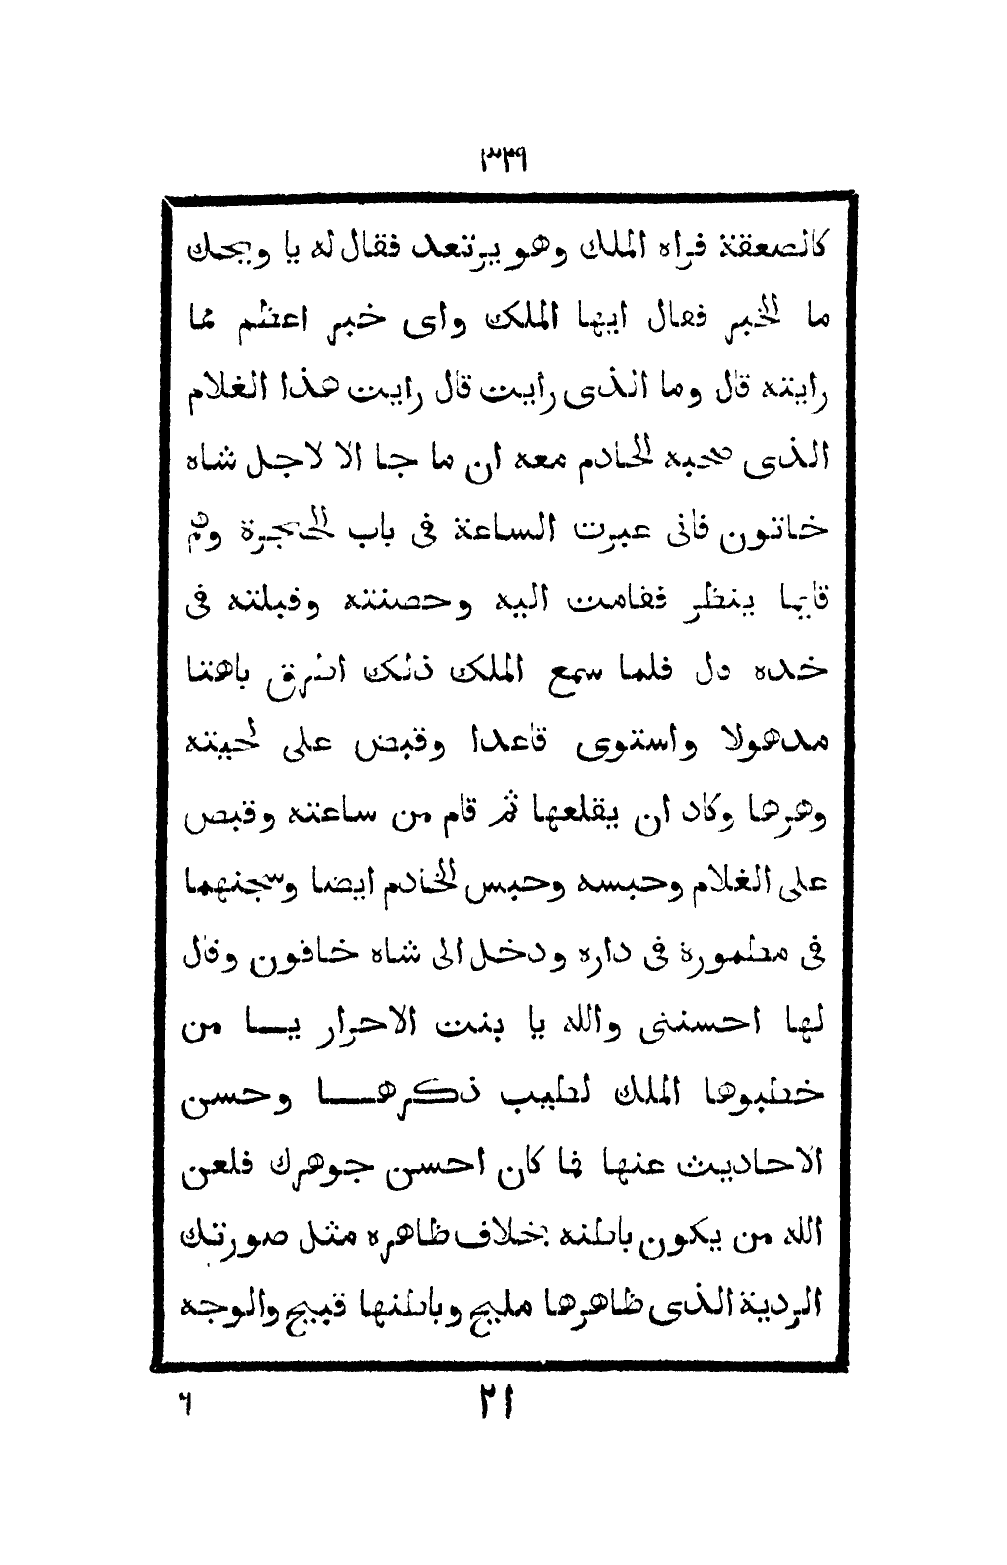 ٣٣٩
كالصعقة فراه الملك وهو يرتعد فقال له يا ويحك
ما الخبر فقال ايها الملك واى خبر اعظم مما
رايته قال وما الذى رايت قال رايت هذا الغلام
الذى صحبه الخادم معه ان ما جا الا لاجل شاه
خاتون فانى عبرت الساعة فى باب الحجرة وهم
قايما ينظر فقامت اليه وحصنته وقبلته فى
خده دل فلما سمع الملك ذلك اطرق باهتا
مدهولا واستوى قاعدا وقبض على لحيته
وهرها وكاد ان يقلعها ثم قام من ساعته وقبص
على الغلام وحبسه وحبس الخادم ايضا وسجنهما
فى مطمورة فى داره ودخل الى شاه خافون وقال
لها احسنتى والله يا بنت الاحرار يا من
خطبوها الملك لطيب ذكرها وحسن
الاحاديث عنها فما كان احسن جوهرك فلعن
الله من يكون باطنه بخلاف ظاهره مثل صورتك
الردية الذى ظاهرها مليح وباطنها قبيح والوجه
٢١
٦